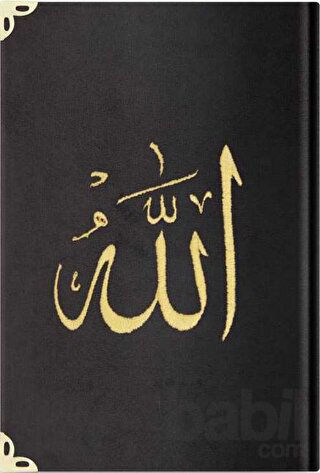 الله
babil
com